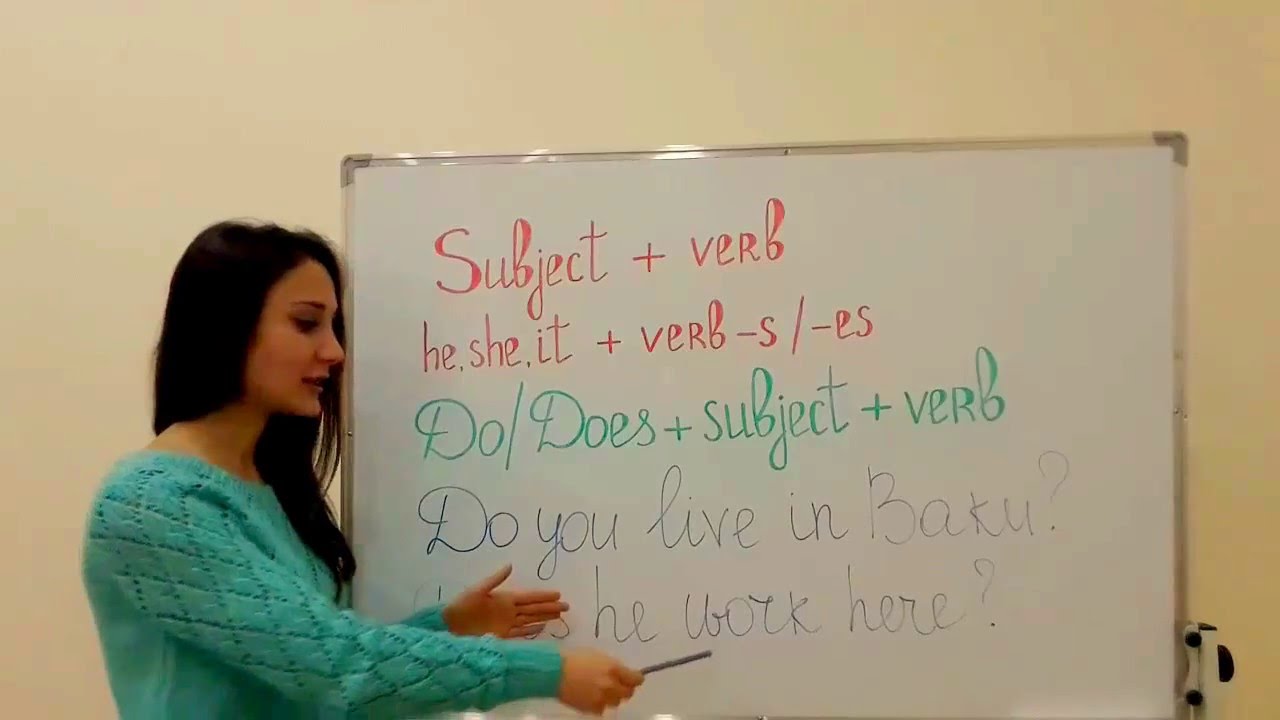 Subject + verb
he, she, it + verb -s / -es
Do/Does + subject + verb
Do you live in Baku?
he work here?